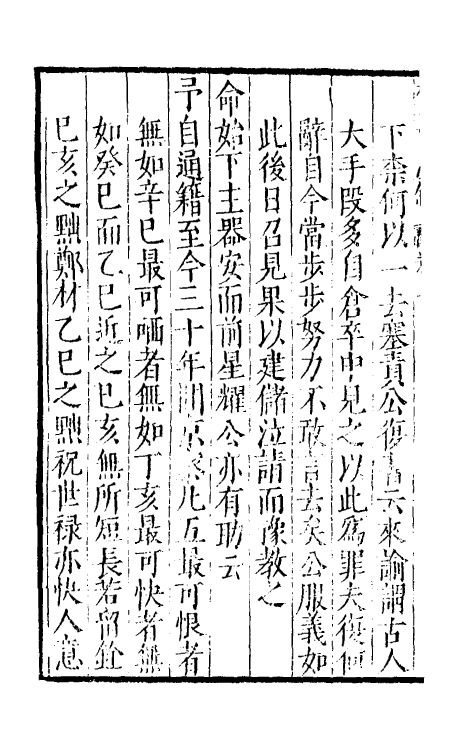 下柰何以一去塞責公復書云來諭謂古人
大手段多自倉卒中見之以此爲罪夫復何
辭自今當步步努力不敢言去矣公服義如
此後日召見果以建儲泣請而豫教之
命始下主器安而前星耀公亦有助云
予自通籍至今三十年間京察凡五最可恨者
無如辛巳最可哂者無如丁亥最可快者無
如癸巳而乙巳近之巳亥無所短長若留銓
巳亥之黜鄭材乙巳之黜祝世祿亦快人意